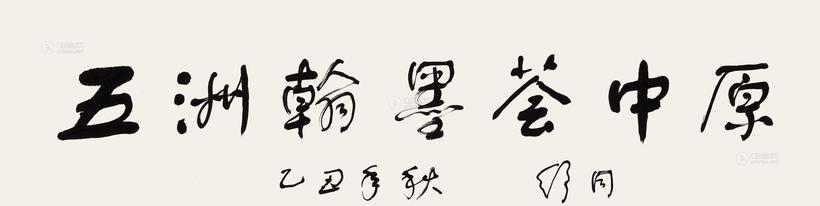 五洲翰墨荟中原
乙丑年秋 舒同